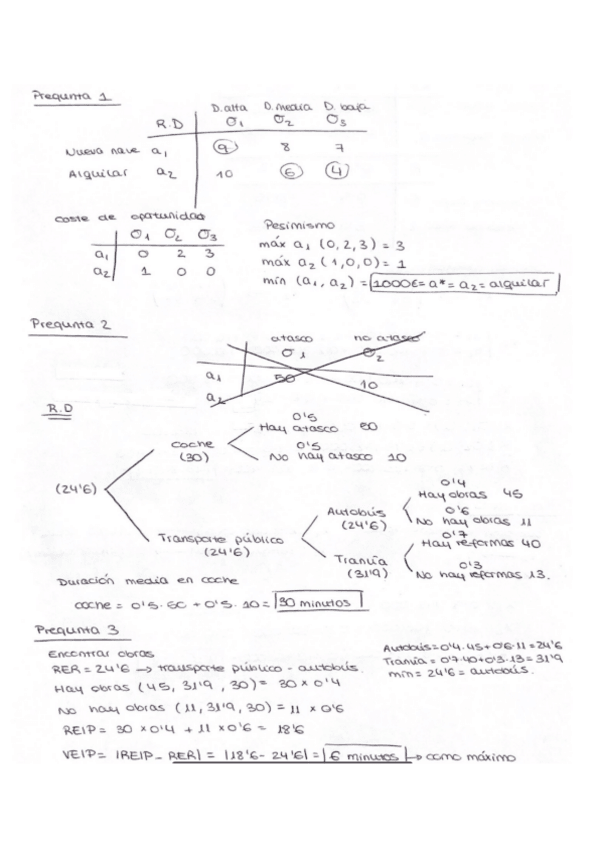 Pregunta 1
D. alta D. media D. baja
R.D σ1 σ2 σ3
Nueva nave a1 9 8 7
Alquilar a2 10 6 4
Coste de oportunidad
σ1 σ2 σ3
a1 0 2 3
a2 1 0 0
Pesimismo
máx a1 (0, 2, 3) = 3
máx a2 (1, 0, 0) = 1
min (a1, a2) = 1000€ = a* = a2 = alquilar
Pregunta 2
atasco no atasco
σ1 σ2
a1 50 10
a2
R.D
0'5
Hay atasco 50
coche
(30)
0'5
No hay atasco 10
(24'6)
0'4
Hay obras 45
Autobús
(24'6)
0'6
No hay obras 11
Transporte público
(24'6)
0'7
Hay reformas 40
Tranvía
(31'9)
0'3
No hay reformas 13.
Duración media en coche
coche = 0'5 · 50 + 0'5 · 10 = 30 minutos
Pregunta 3
Encontrar obras
RER = 24'6 → transporte público - autobús.
Hay obras (45, 31'9, 30) = 30 x 0'4
No hay obras (11, 31'9, 30) = 11 x 0'6
REIP = 30 x 0'4 + 11 x 0'6 = 18'6
VEIP = |REIP - RER| = |18'6 - 24'6| = 6 minutos → como máximo
Autobús = 0'4 · 45 + 0'6 · 11 = 24'6
Tranvía = 0'7 · 40 + 0'3 · 13 = 31'9
min = 24'6 = autobús.